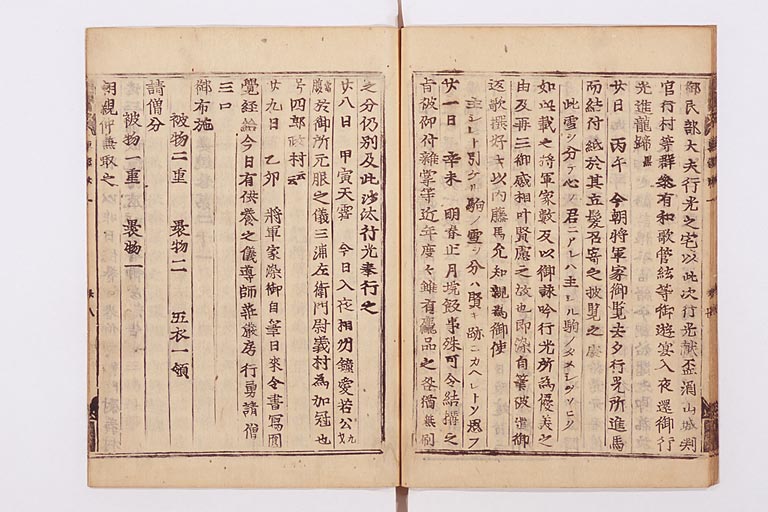 御民部大夫行光之宅以此次行光献盃酒山城判
官行村等群衆有和歌管絃等御遊宴入夜還御行
光進龍蹄
廿日 丙午 今朝将軍家御覧去夕行光所進馬
而結付紙於其立髪召寄之披覧之處
此雪ヲ分テ心ノ君ニアレハ主シル駒ノタメシヲソヒク
如此載之将軍家数反以御詠吟行光所為優美之
由及再三御感相叶賢慮之故也即染自筆被遣御
返歌撰好士以内藤馬允知親為御使
主シレト引ケル駒ノ雪ヲ分ハ賢キ跡ニカヘレトソ思フ
廿一日 辛未 明春正月垸飯事殊可令結搆之
旨被仰付雑掌等近年度々雖有麁品之答猶無倒
之分仍別及此沙汰行光奉行之
廿八日 甲寅天霽 今日入夜相州鐘愛若公九
於御所元服之儀三浦左衛門尉義村為加冠也
号四郎政村云云
廿九日 乙卯 将軍家染御自筆日来令書寫圓
覺経給今日有供養之儀導師荘厳房行勇請僧
三口
御布施
被物二重 裹物二 五衣一領
請僧分
被物一重 裹物一
相親仲無取之